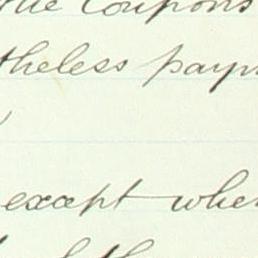 the coupons
theless paym
except when